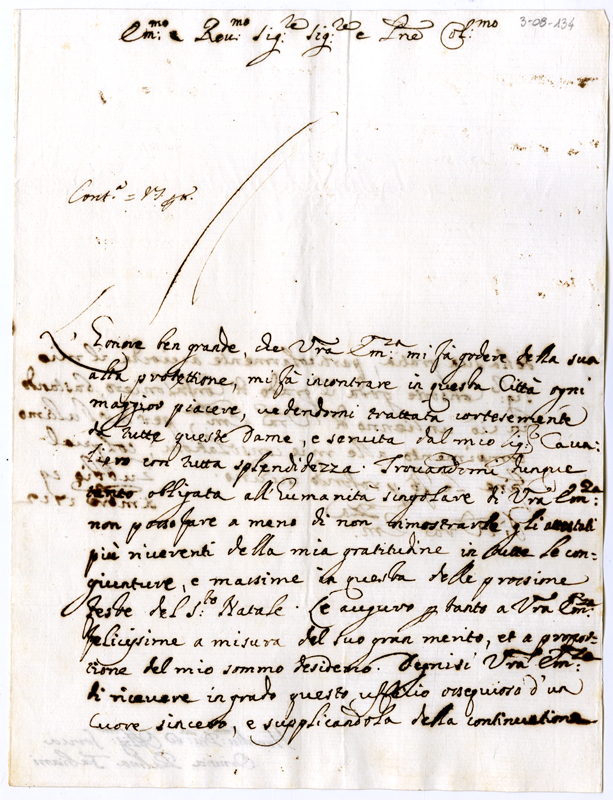 3-08-134
Em:mo e Reu:mo Sig:re Sig:re e Pne Col:mo
L'honore ben grande, che Vra Em:za mi fà godere della sua
alta protettione, mi fà incontrare in questa Città ogni
maggior piacere, uedendomi trattata cortesemente
da tutte queste Dame, e seruita dal mio Sig:r Caua-
liero con tutta splendidezza. Trouandomi dunque
tanto obligata all'humanità singolare di Vra Em:za
non posso fare a meno di non dimostrarle gli attestati
più riuerenti della mia gratitudine in tutte le con-
giunture, e massime in questa delle prossime
feste del S:to Natale. Le auguro p tanto a Vra Em:za
felicissime a misura del suo gran merito, et a propor-
tione del mio sommo desiderio. Degnisi Vra Em:za
di riceuere in grado questo uffitio ossequioso d'un
Cuore sincero, e supplicandola della continuatione